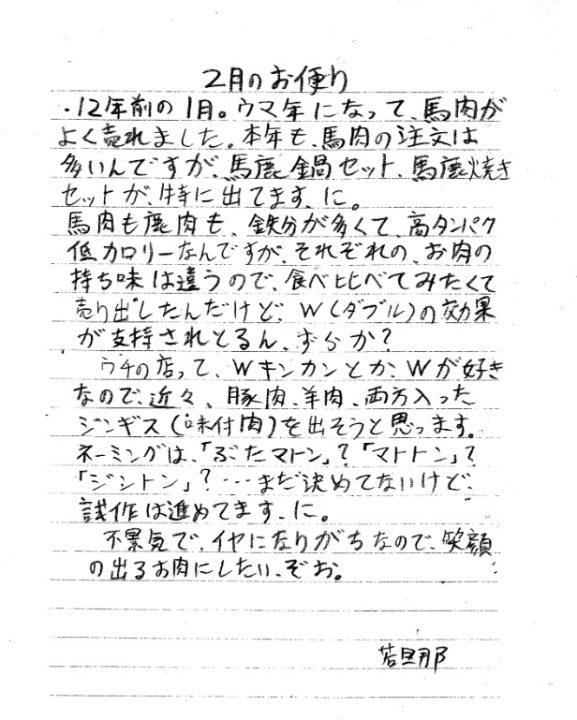 2月のお便り
・12年前の1月。ウマ年になって、馬肉が
よく売れました。本年も、馬肉の注文は
多いんですが、馬鹿鍋セット、馬鹿焼き
セットが、特に出てます、に。
馬肉も鹿肉も、鉄分が多くて、高タンパク
低カロリーなんですが、それぞれの、お肉の
持ち味は違うので、食べ比べてみたくて
売り出したんだけど、W(ダブル)の効果
が支持されとるん、ずらか?
ウチの店って、Wキンカンとか、Wが好き
なので、近々、豚肉、羊肉、両方入った
ジンギス(味付肉)を出そうと思ってます。
ネーミングは、「ぶたマトン」?「マトトン」?
「ジントン」?…まだ決めてないけど、
試作は進めてます、に。
不景気で、イヤになりがちなので、笑顔
の出るお肉にしたい、ぞお。
若旦那